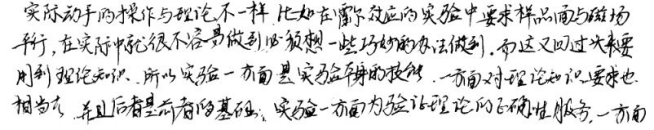 实际动手的操作与理论不一样,比如在霍尔效应的实验中要求样品面与磁场
平行,在实际中就很不容易做到,必须想一些巧妙的办法做到,而这又回过头来要
用到理论知识.所以实验一方面是实验本身的技能,一方面对理论知识要求也
相当高,并且后者是前者的基础;实验一方面为验证理论的正确性服务,一方面